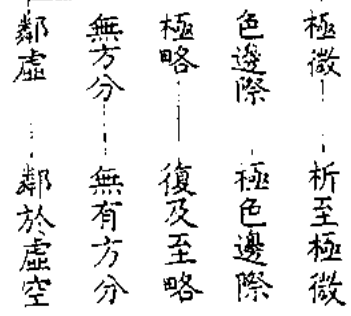 極微……析至極微
色邊際……極色邊際
極略……復及至略
無方分……無有方分
鄰虛……鄰於虛空